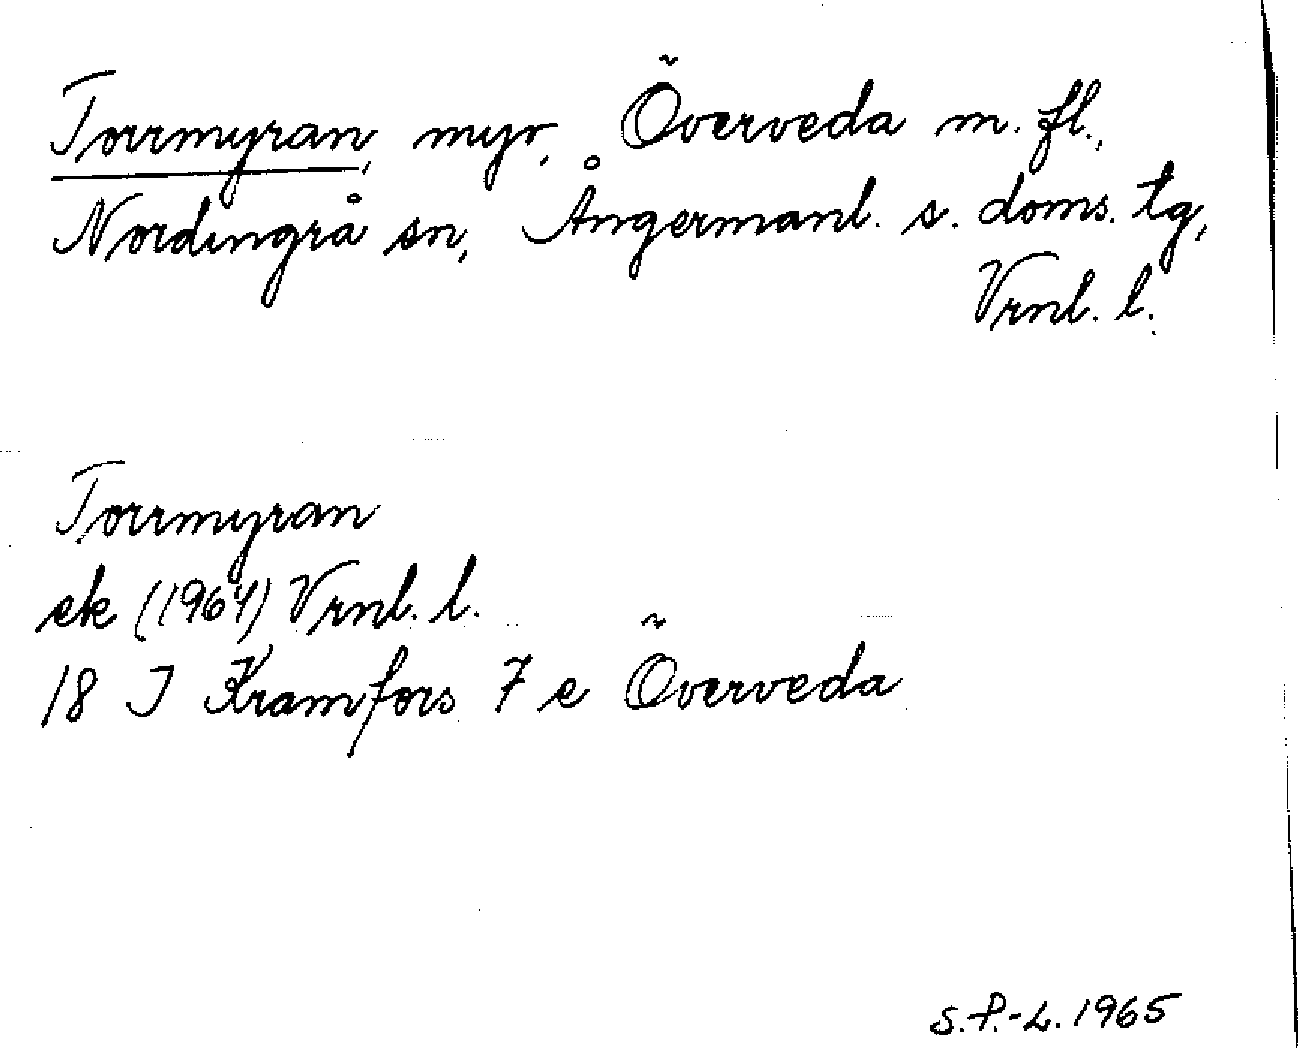 Torrmyran, myr, Överveda m. fl.,
Nordingrå sn, Ångermanl. s. doms. tg,
Vrnl. l.
Torrmyran
ek (1964) Vrnl. l.
18 I Kramfors 7 e Överveda
S.P.-L. 1965